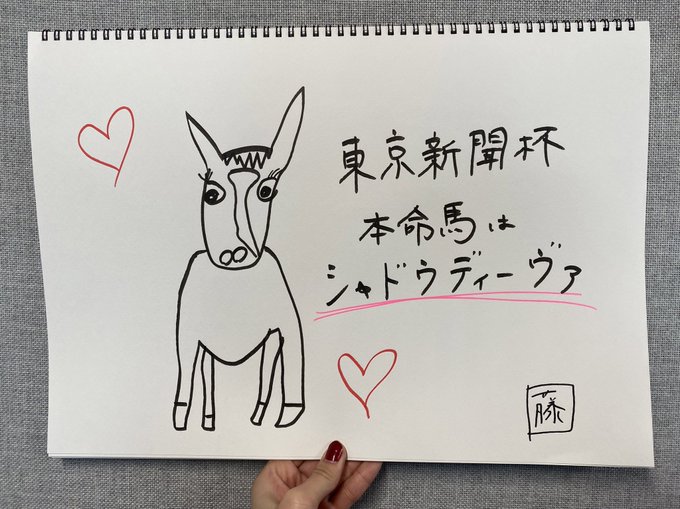 東京新聞杯
本命馬は
シャドウディーヴァ
藤